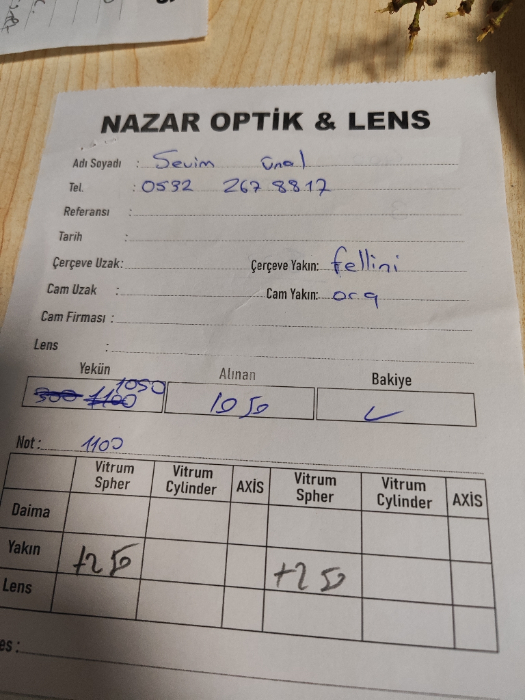 NAZAR OPTİK & LENS
Adı Soyadı : Sevim Ünal
Tel. : 0532 267 8817
Referansı :
Tarih :
Çerçeve Uzak: Çerçeve Yakın: fellini
Cam Uzak : Cam Yakın: org
Cam Firması :
Lens :
Yekün Alınan Bakiye
300 1100 1050 1050 ✓
Not : 1100
Vitrum Spher Vitrum Cylinder AXİS Vitrum Spher Vitrum Cylinder AXİS
Daima
Yakın +2 50 +2 50
Lens